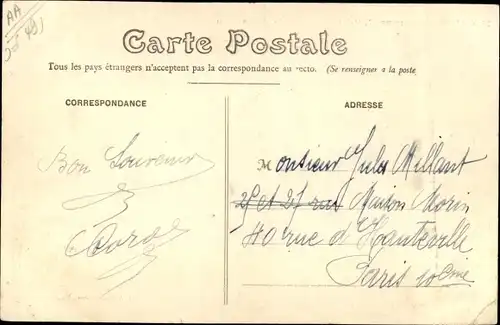 AA
Carte Postale
Tous les pays étrangers n'acceptent pas la correspondance au recto. (Se renseigner a la poste
CORRESPONDANCE
ADRESSE
Bon Souvenir
Monsieur Jules Millant
Maison Morin
40 rue d'Hauteville
Paris 10eme